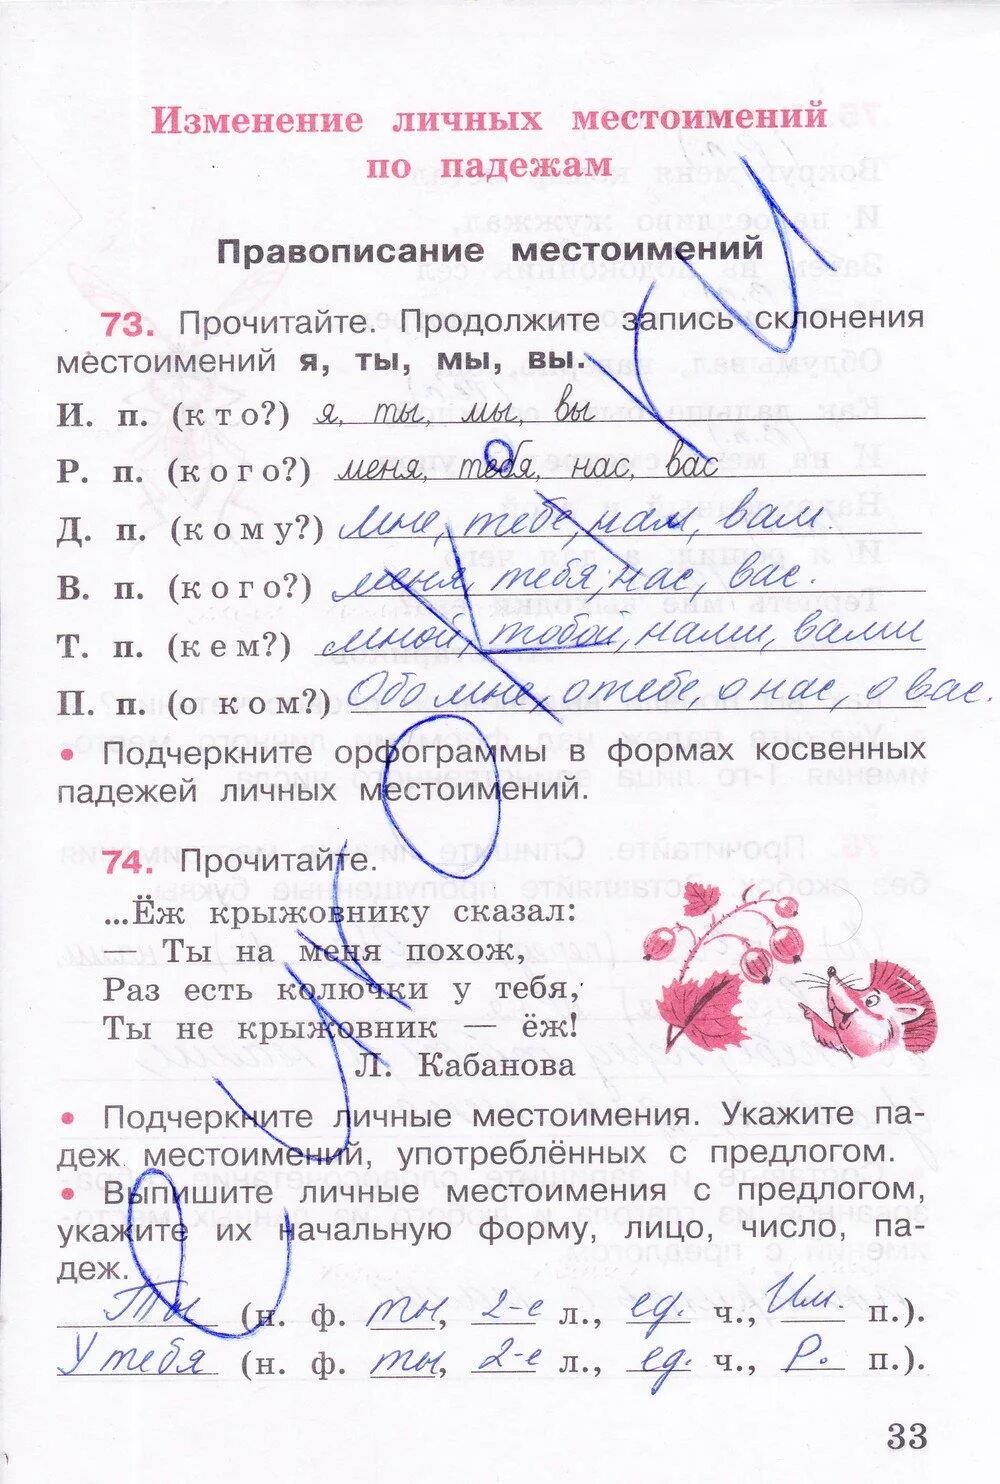 Изменение личных местоимений
по падежам
Правописание местоимений
73. Прочитайте. Продолжите запись склонения
местоимений я, ты, мы, вы.
И. п. (кто?) я, ты, мы, вы
Р. п. (кого?) меня, тебя, нас, вас
Д. п. (кому?) мне, тебе, нам, вам.
В. п. (кого?) меня, тебя, нас, вас.
Т. п. (кем?) мной, тобой, нами, вами
П. п. (о ком?) Обо мне, о тебе, о нас, о вас.
• Подчеркните орфограммы в формах косвенных
падежей личных местоимений.
74. Прочитайте.
...Ёж крыжовнику сказал:
— Ты на меня похож,
Раз есть колючки у тебя,
Ты не крыжовник — ёж!
Л. Кабанова
• Подчеркните личные местоимения. Укажите па-
деж местоимений, употреблённых с предлогом.
• Выпишите личные местоимения с предлогом,
укажите их начальную форму, лицо, число, па-
деж.
Ты (н. ф. ты, 2-е л., ед. ч., Им. п.).
У тебя (н. ф. ты, 2-е л., ед. ч., Р. п.).
33